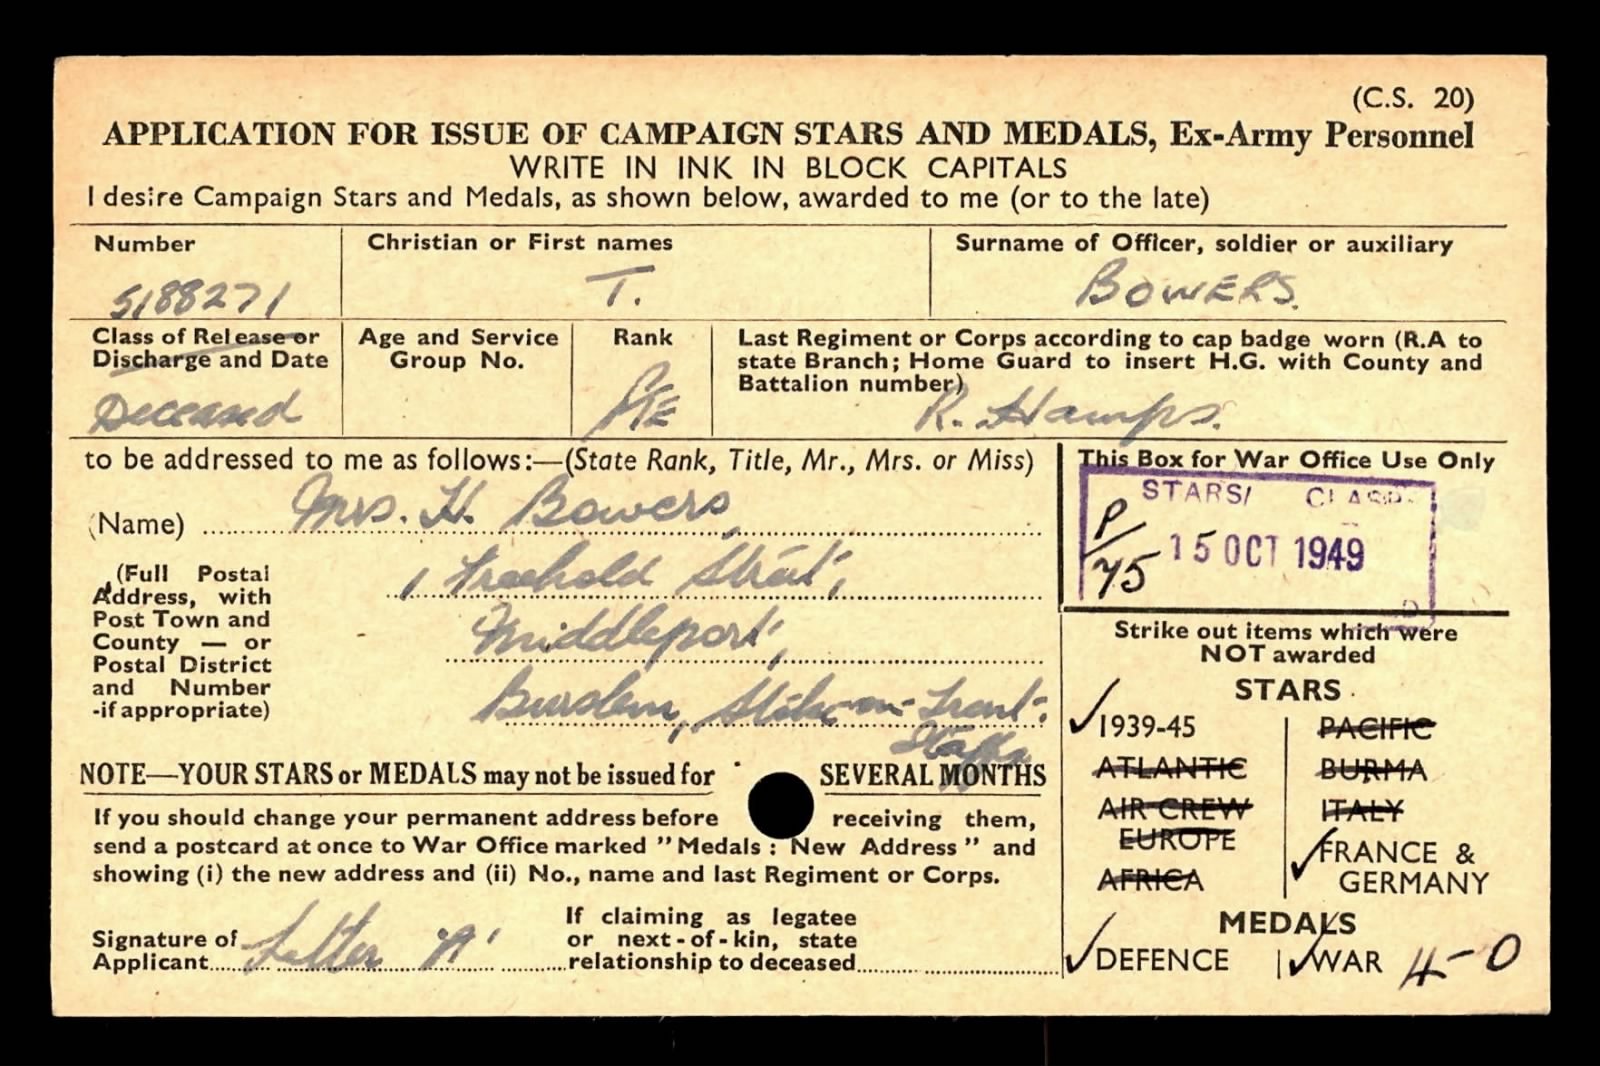 (C.S. 20)
APPLICATION FOR ISSUE OF CAMPAIGN STARS AND MEDALS, Ex-Army Personnel
WRITE IN INK IN BLOCK CAPITALS
I desire Campaign Stars and Medals, as shown below, awarded to me (or to the late)
Number Christian or First names Surname of Officer, soldier or auxiliary
5188271 T. BOWERS.
Class of Release or Discharge and Date
Deceased
Age and Service Group No.
Rank
PTE
Last Regiment or Corps according to cap badge worn (R.A to
state Branch; Home Guard to insert H.G. with County and
Battalion number)
R. Hamps.
to be addressed to me as follows:—(State Rank, Title, Mr., Mrs. or Miss)
(Name) Mrs. H. Bowers,
(Full Postal
Address, with
Post Town and
County — or
Postal District
and Number
-if appropriate)
1 Freehold Street,
Middleport,
Burslem, Stoke-on-Trent.
Staffs
NOTE—YOUR STARS or MEDALS may not be issued for SEVERAL MONTHS
If you should change your permanent address before receiving them,
send a postcard at once to War Office marked "Medals: New Address" and
showing (i) the new address and (ii) No., name and last Regiment or Corps.
Signature of
Applicant Letter 'A'
If claiming as legatee
or next-of-kin, state
relationship to deceased
This Box for War Office Use Only
STARS/ CLASPS
P/75
15 OCT 1949
Strike out items which were
NOT awarded
STARS
1939-45
ATLANTIC
AIR CREW
EUROPE
AFRICA
PACIFIC
BURMA
ITALY
FRANCE &
GERMANY
MEDALS
DEFENCE WAR 4-0